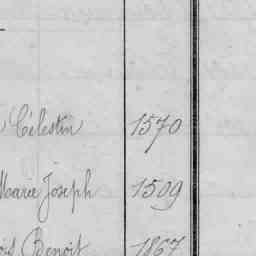 Célestin 1570
Marie Joseph 1509
Benoit 1867